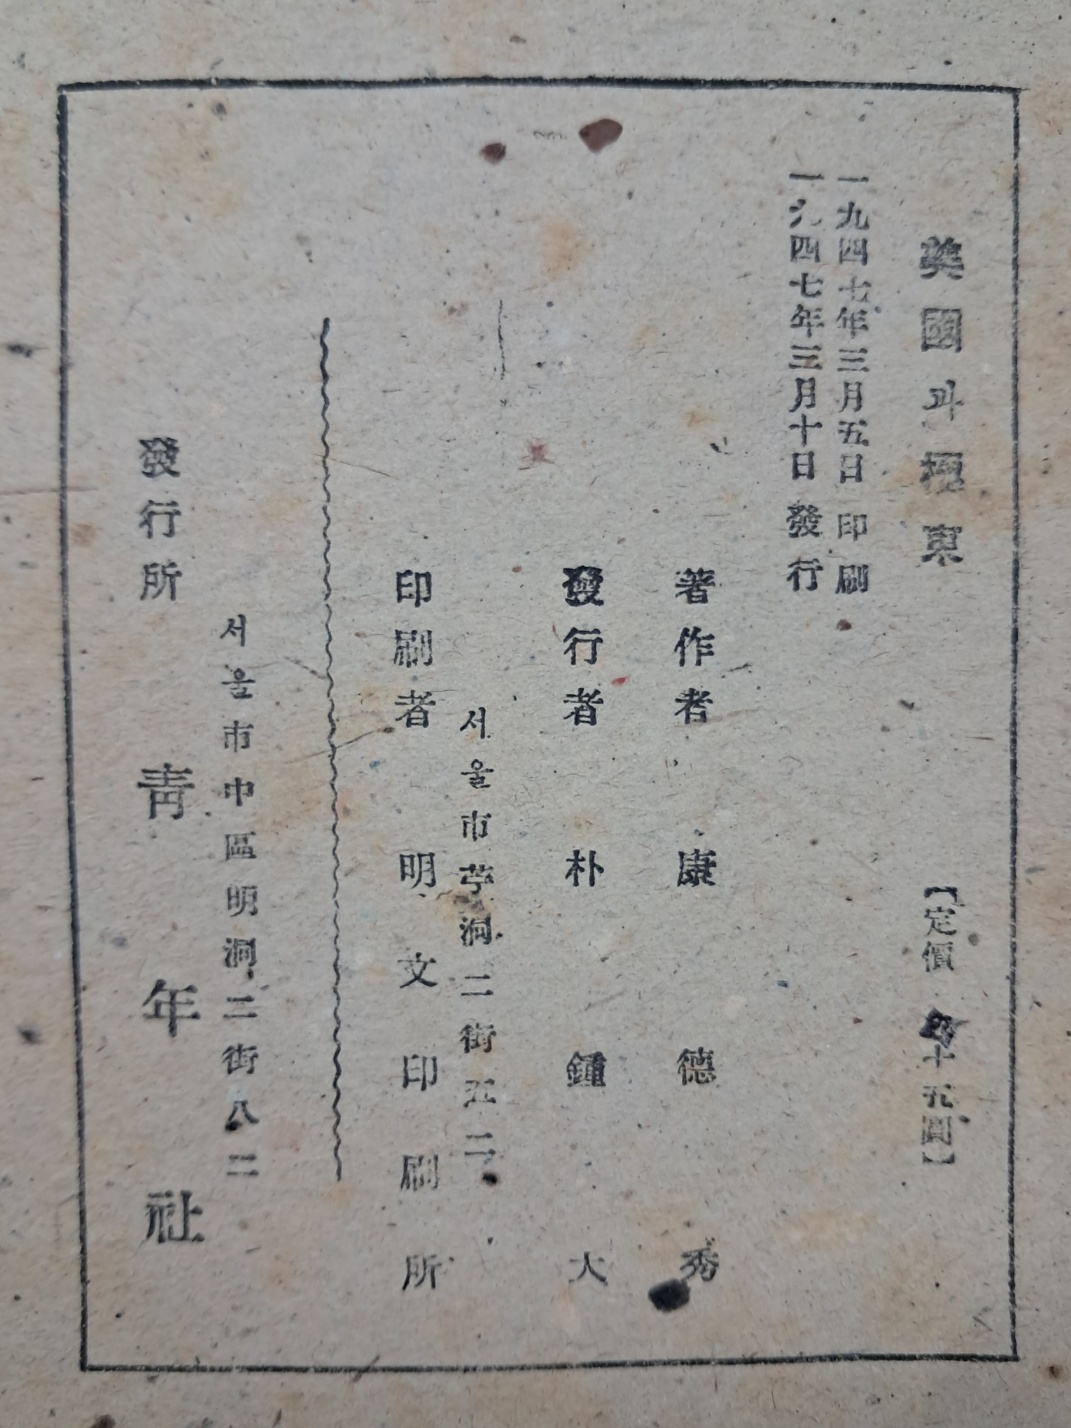 美國과極東
【定價 十五圓】
一九四七年三月五日 印刷
一九四七年三月十日 發行
著作者 康德秀
發行者 朴鍾大
서울市苧洞二街五二
印刷者 明文印刷所
서울市中區明洞二街八二
發行所 靑年社